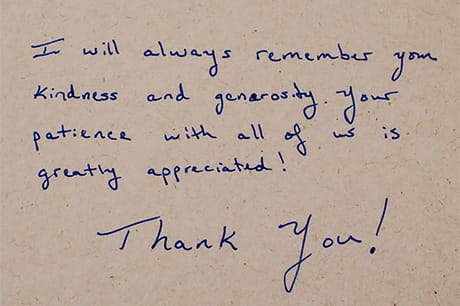 I will always remember your
kindness and generosity. Your
patience with all of us is
greatly appreciated!
Thank You!